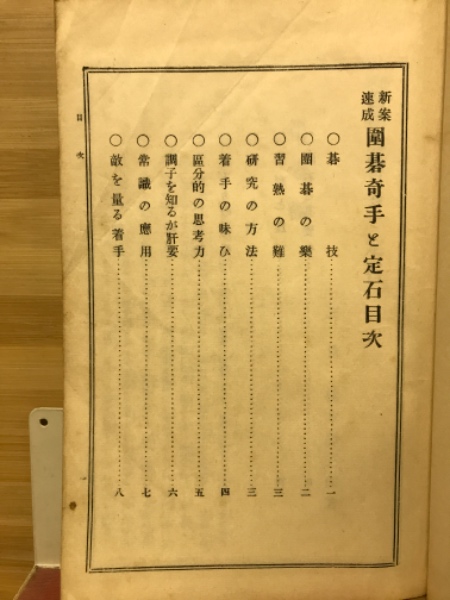 新案速成 圍碁奇手と定石目次
○碁技……一
○圍碁の樂……二
○習熟の難……三
○硏究の方法……三
○着手の味ひ……四
○區分的の思考力……五
○調子を知るが肝要……六
○常識の應用……七
○敵を量る着手……八
目次
一